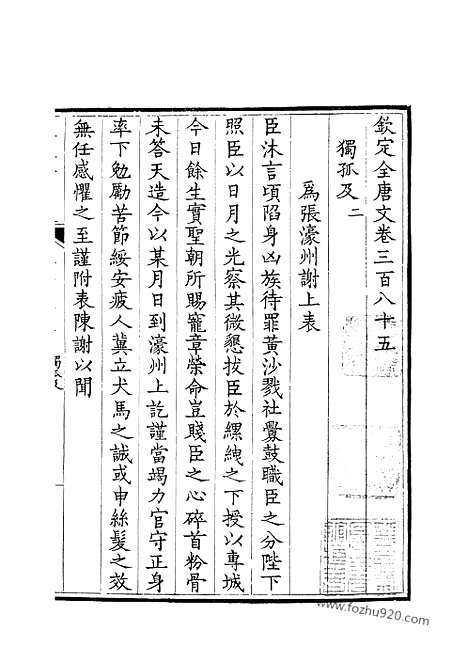 欽定全唐文卷三百八十五
獨孤及二
爲張濠州謝上表
臣沐言頃陷身凶族待罪黃沙戮社釁鼓職臣之分陛下
照臣以日月之光察其微懇拔臣於縲絏之下授以專城
今日餘生實聖朝所賜寵章榮命豈賤臣之心碎首粉骨
未答天造今以某月日到濠州上訖謹當竭力官守正身
率下勉勵苦節綏安疲人冀立犬馬之誠或申絲髮之效
無任感懼之至謹附表陳謝以聞
www.fozhu920.com